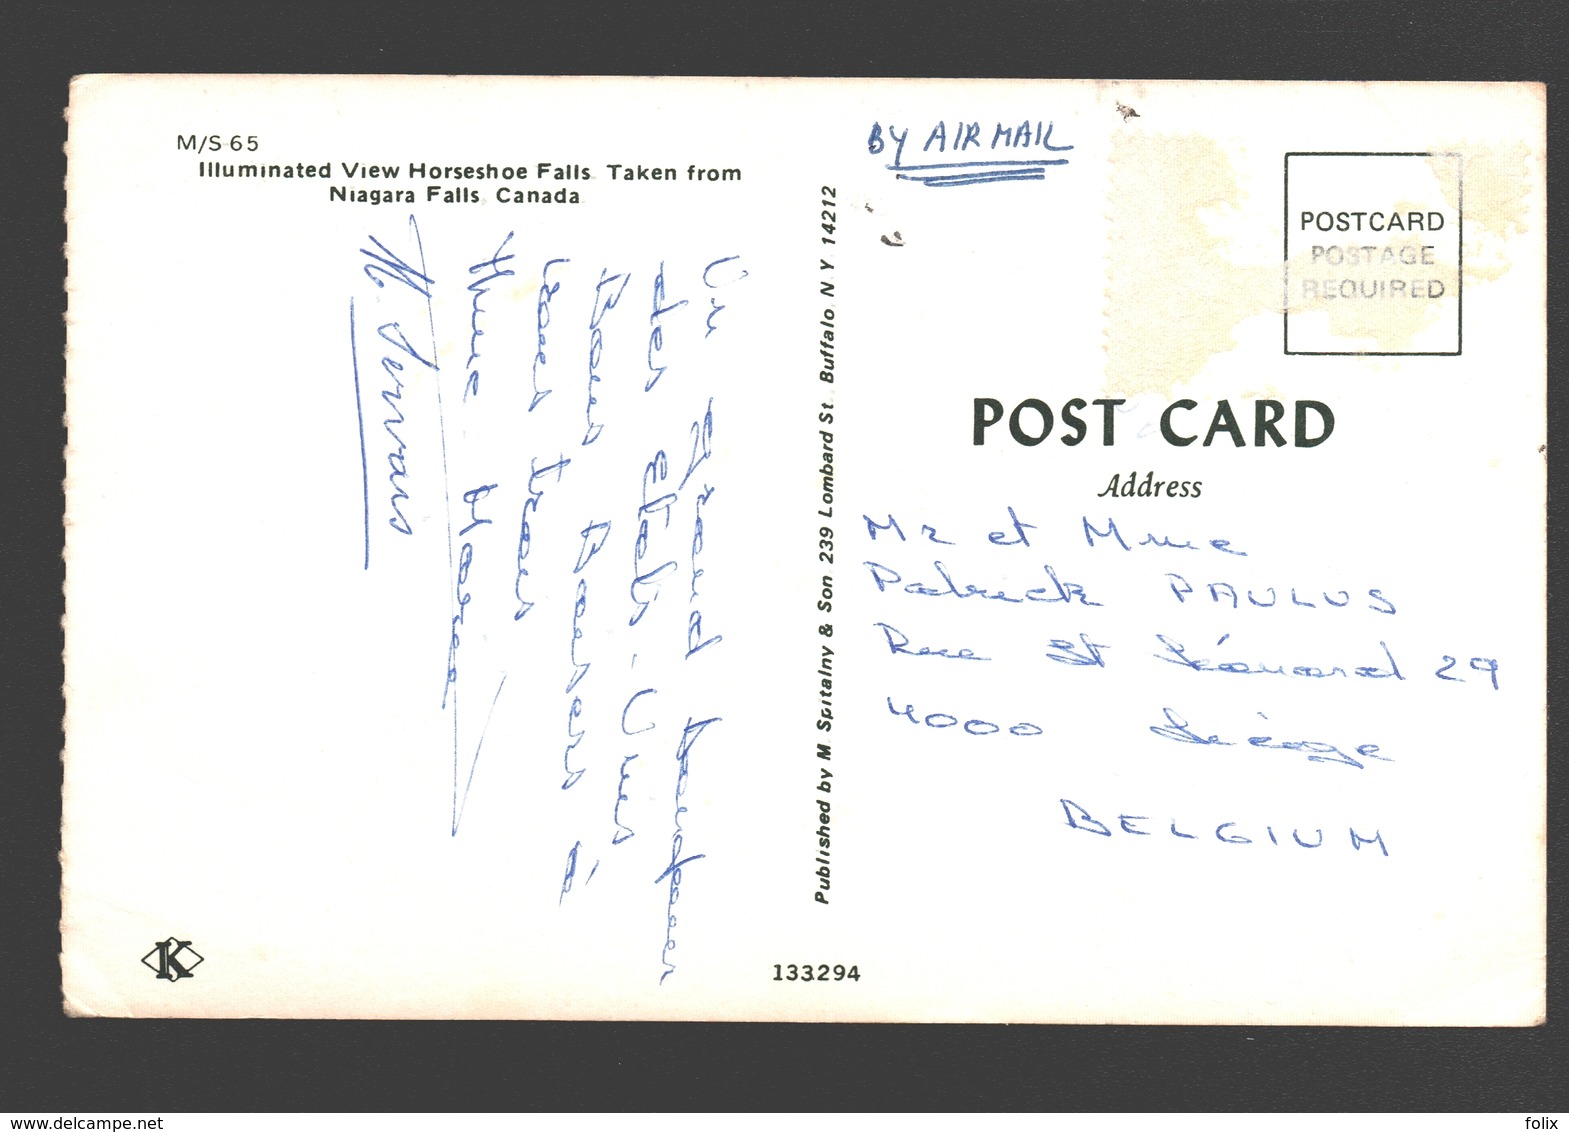 M/S-65
Illuminated View Horseshoe Falls. Taken from
Niagara Falls, Canada
Un grand bonjour
des Etats-Unis
Bons Baisers à
vous tous
Mme
M. Servais
Published by M. Spitalny & Son. 239 Lombard St. Buffalo, N.Y. 14212
K
133294
BY AIR MAIL
POSTCARD
POSTAGE
REQUIRED
POST CARD
Address
Mr et Mme
Patrick PAULUS
Rue St Léonard 29
4000 Liège
BELGIUM
www.delcampe.net
felix